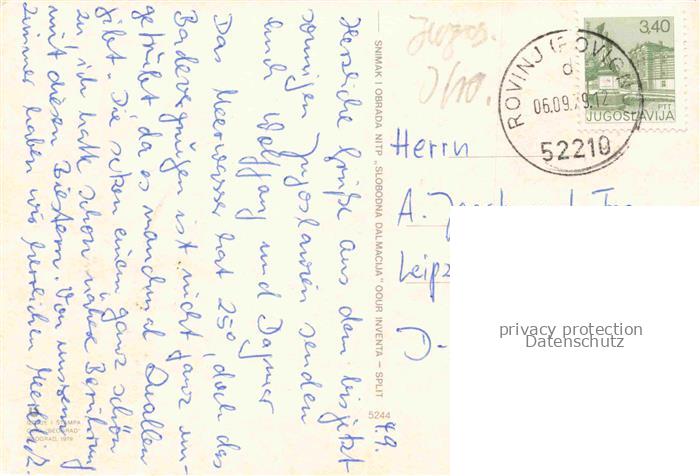 4.9.
Herzliche Grüße aus dem bis jetzt
sonnigen Jugoslawien senden
Euch Wolfgang und Dagmar
Das Meerwasser hat 25°, doch das
Badevergnügen ist nicht ganz un-
getrübt da es manchmal Quallen
gibt. Die setzen einem ganz schön
zu, ich hatte schon nähere Berührung
mit diesen Biestern. Von unserem
Zimmer haben wir herrlichen Meerblick.
SNIMAK I OBRADA NITP „SLOBODNA DALMACIJA" OOUR INVENTA – SPLIT
5244
IZDAJE I ŠTAMPA
"BEOGRAD"
BEOGRAD, 1979
Jugos.
3,40
PTT
JUGOSLAVIJA
ROVINJ (ROVIGNO)
d
06.09.79.12
52210
Herrn
A.
Leipz
D-
privacy protection
Datenschutz